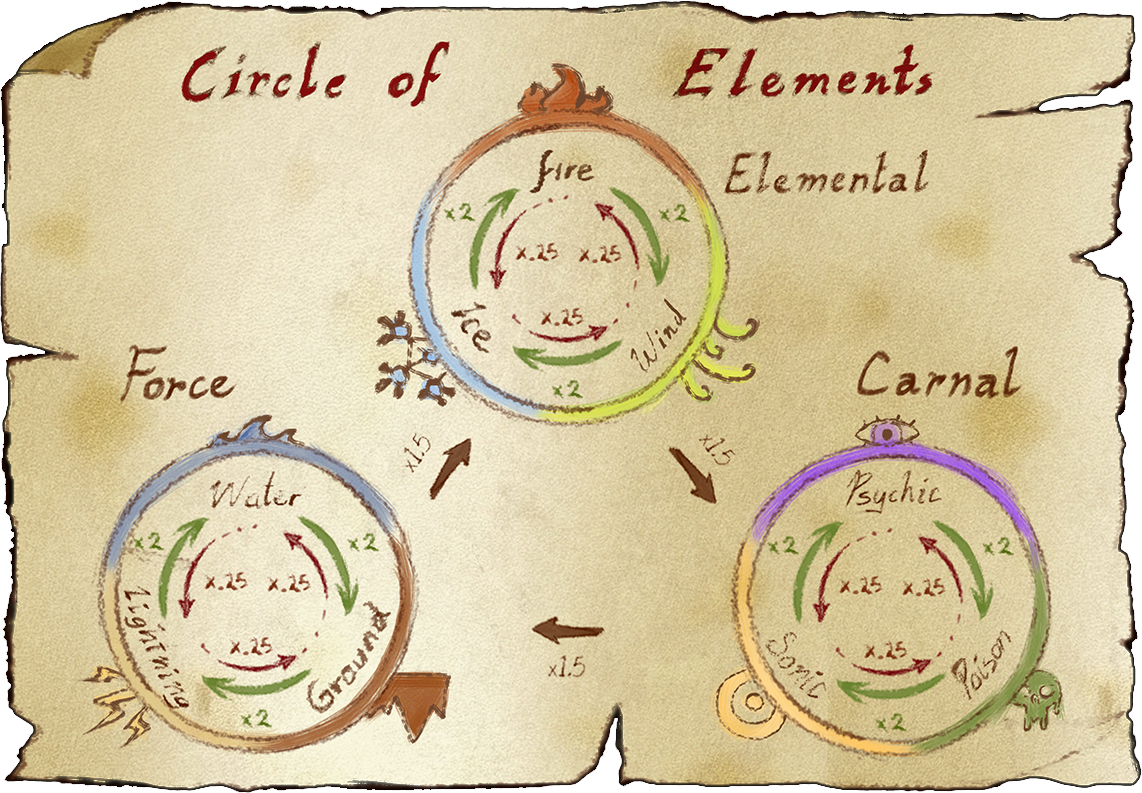 Circle of Elements
Elemental
fire
x2
x2
x.25
x.25
Ice
x.25
Wind
x2
Force
Carnal
x1.5
x1.5
Water
x2
x2
x.25
x.25
Lightning
x.25
Ground
x2
Psychic
x2
x2
x.25
x.25
Sonic
x.25
Poison
x2
x1.5